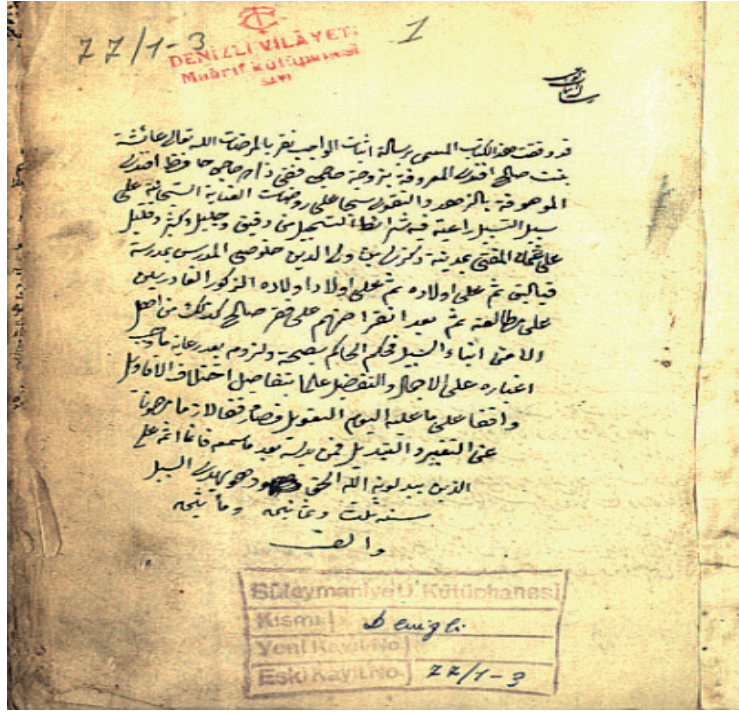 77/1-3
1
TC
DENİZLİ VİLÂYETİ
Maârif Kütüphanesi
SAYI
قد وقفت هذا الكتاب المسمى برسالة اثبات الواجب تقربا لمرضات الله تعالى عائشة
بنت صالح افندى المعروفة بزوجة حاجى مفتى زاده حاجى حافظ افندى
الموصوفة بالزهد والتقوى على روضات العناية السبحانية على
سبيل التسبيل راعية فيه شرائط التسجيل من دقيق وجليل وكثير وقليل
على عثمان المفتى بمدينة دكزلى بن ولى الدين خلوصى المدرس بمدرسة
ثم على اولاده ثم على اولاد اولاده الذكور القادرين
على مطالعته ثم بعد انقراضهم على فقير صالح كذلك من اهل
ابناء السبيل فحكم الحاكم بصحته ولزومه بعد رعاية ما وجب
على الاجمال والتفصيل عالما بتفاصيل اختلاف الاقاويل
واقفا على ما عليه اليوم التعويل فصار وقفا لازما مرهونا
عن التغيير والتبديل فمن بدله بعد ما سمعه فانما اثمه على
الذين يبدلونه الله الحق وهو يهدى السبيل
سنة ثلث وثمانين وماتين
والف
Süleymaniye U. Kütüphanesi
Kısmı Denizli
Yeni Kayıt No.
Eski Kayıt No. 77/1-3